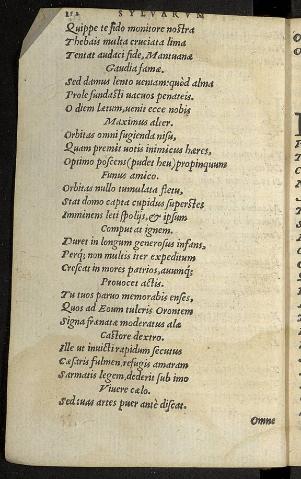 112 SYLVARVM
Quippe te fido monitore nostra
Thebais multa cruciata lima
Tentat audaci fide, Mantuanæ
Gaudia famæ.
Sed damus lento ueniam: quòd alma
Prole fundasti uacuos penateis.
O diem lætum, uenit ecce nobis
Maximus alter.
Orbitas omni fugienda nisu,
Quam premit uotis inimicus hæres,
Optimo poscens (pudet heu) propinquum
Funus amico.
Orbitas nullo tumulata fletu,
Stat domo capta cupidus superstes
Imminens leti spolijs, & ipsum
Computat ignem.
Duret in longum generosus infans,
Perq; non multis iter expeditum
Crescat in mores patrios, auumq;
Prouocet actis.
Tu tuos paruo memorabis enses,
Quos ad Eoum tuleris Orontem
Signa frænatæ moderatus alæ
Castore dextro.
Ille ut inuicti rapidum secutus
Cæsaris fulmen, refugis amaram
Sarmatis legem, dederit sub imo
Viuere cælo.
Sed tuas artes puer antè discat.
Omne